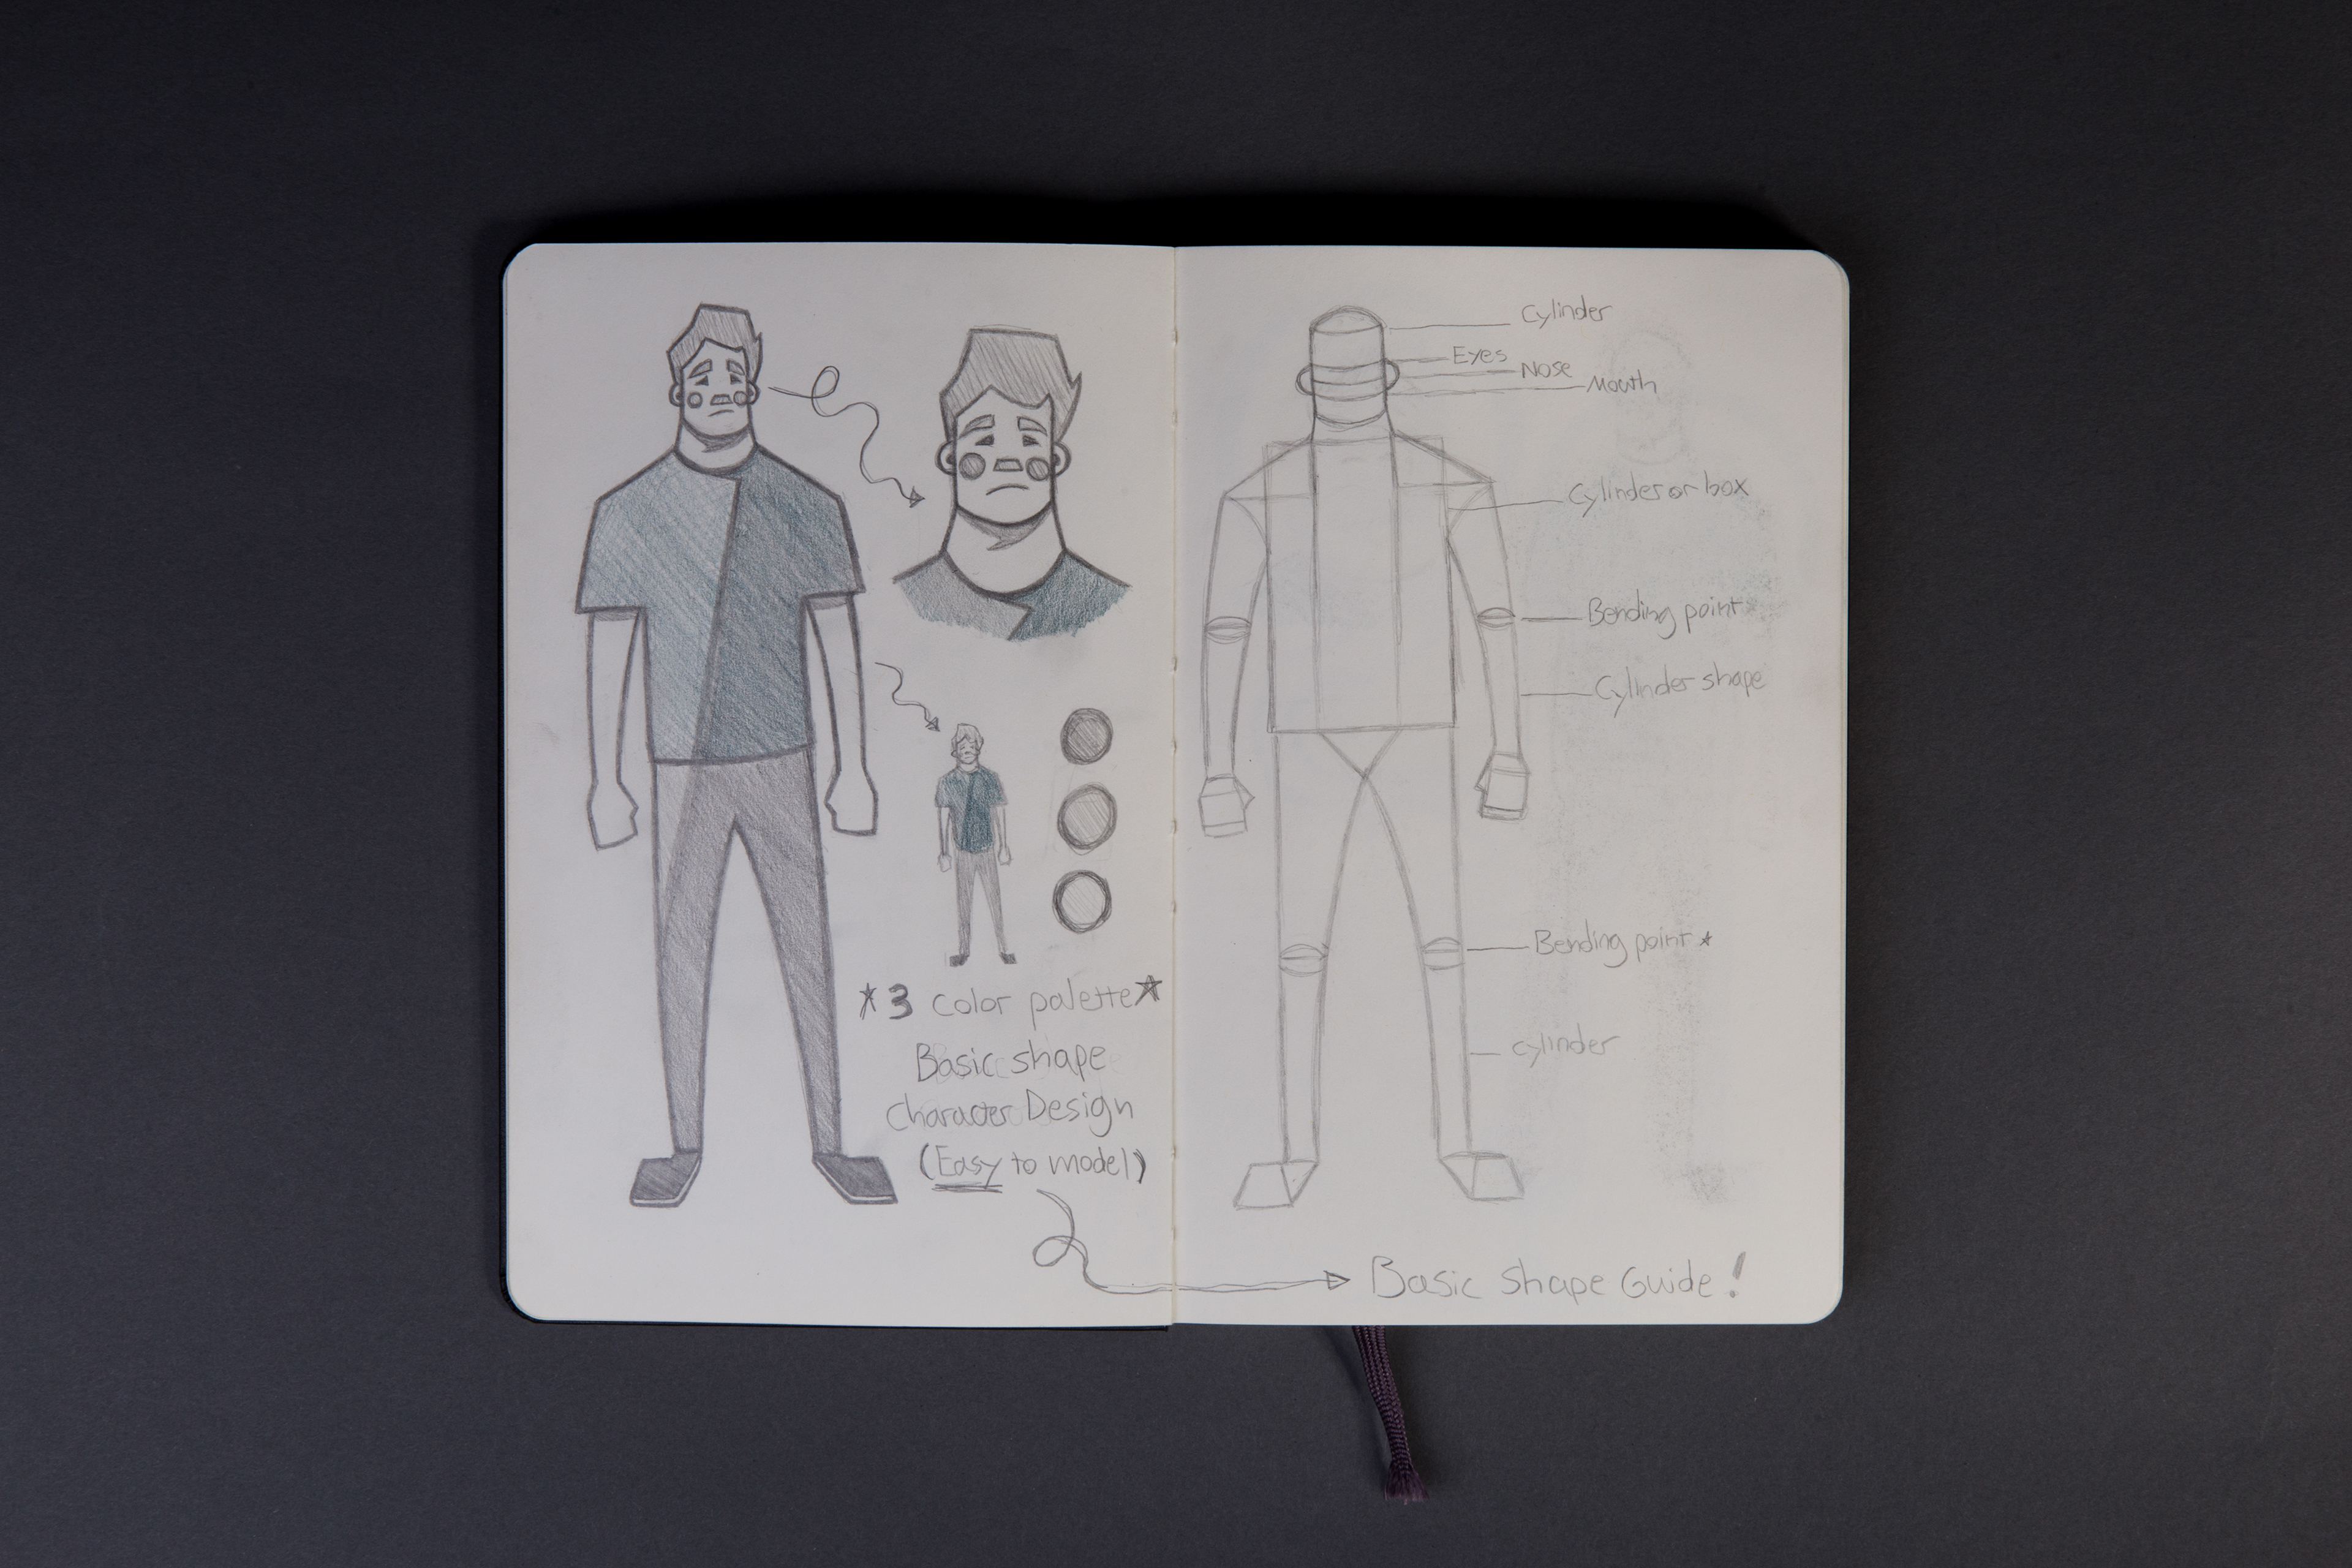 *3 color palette*
Basic shape
Character Design
(Easy to model)
Cylinder
Eyes
Nose
Mouth
Cylinder or box
Bending point
Cylinder shape
Bending point *
cylinder
Basic shape Guide!